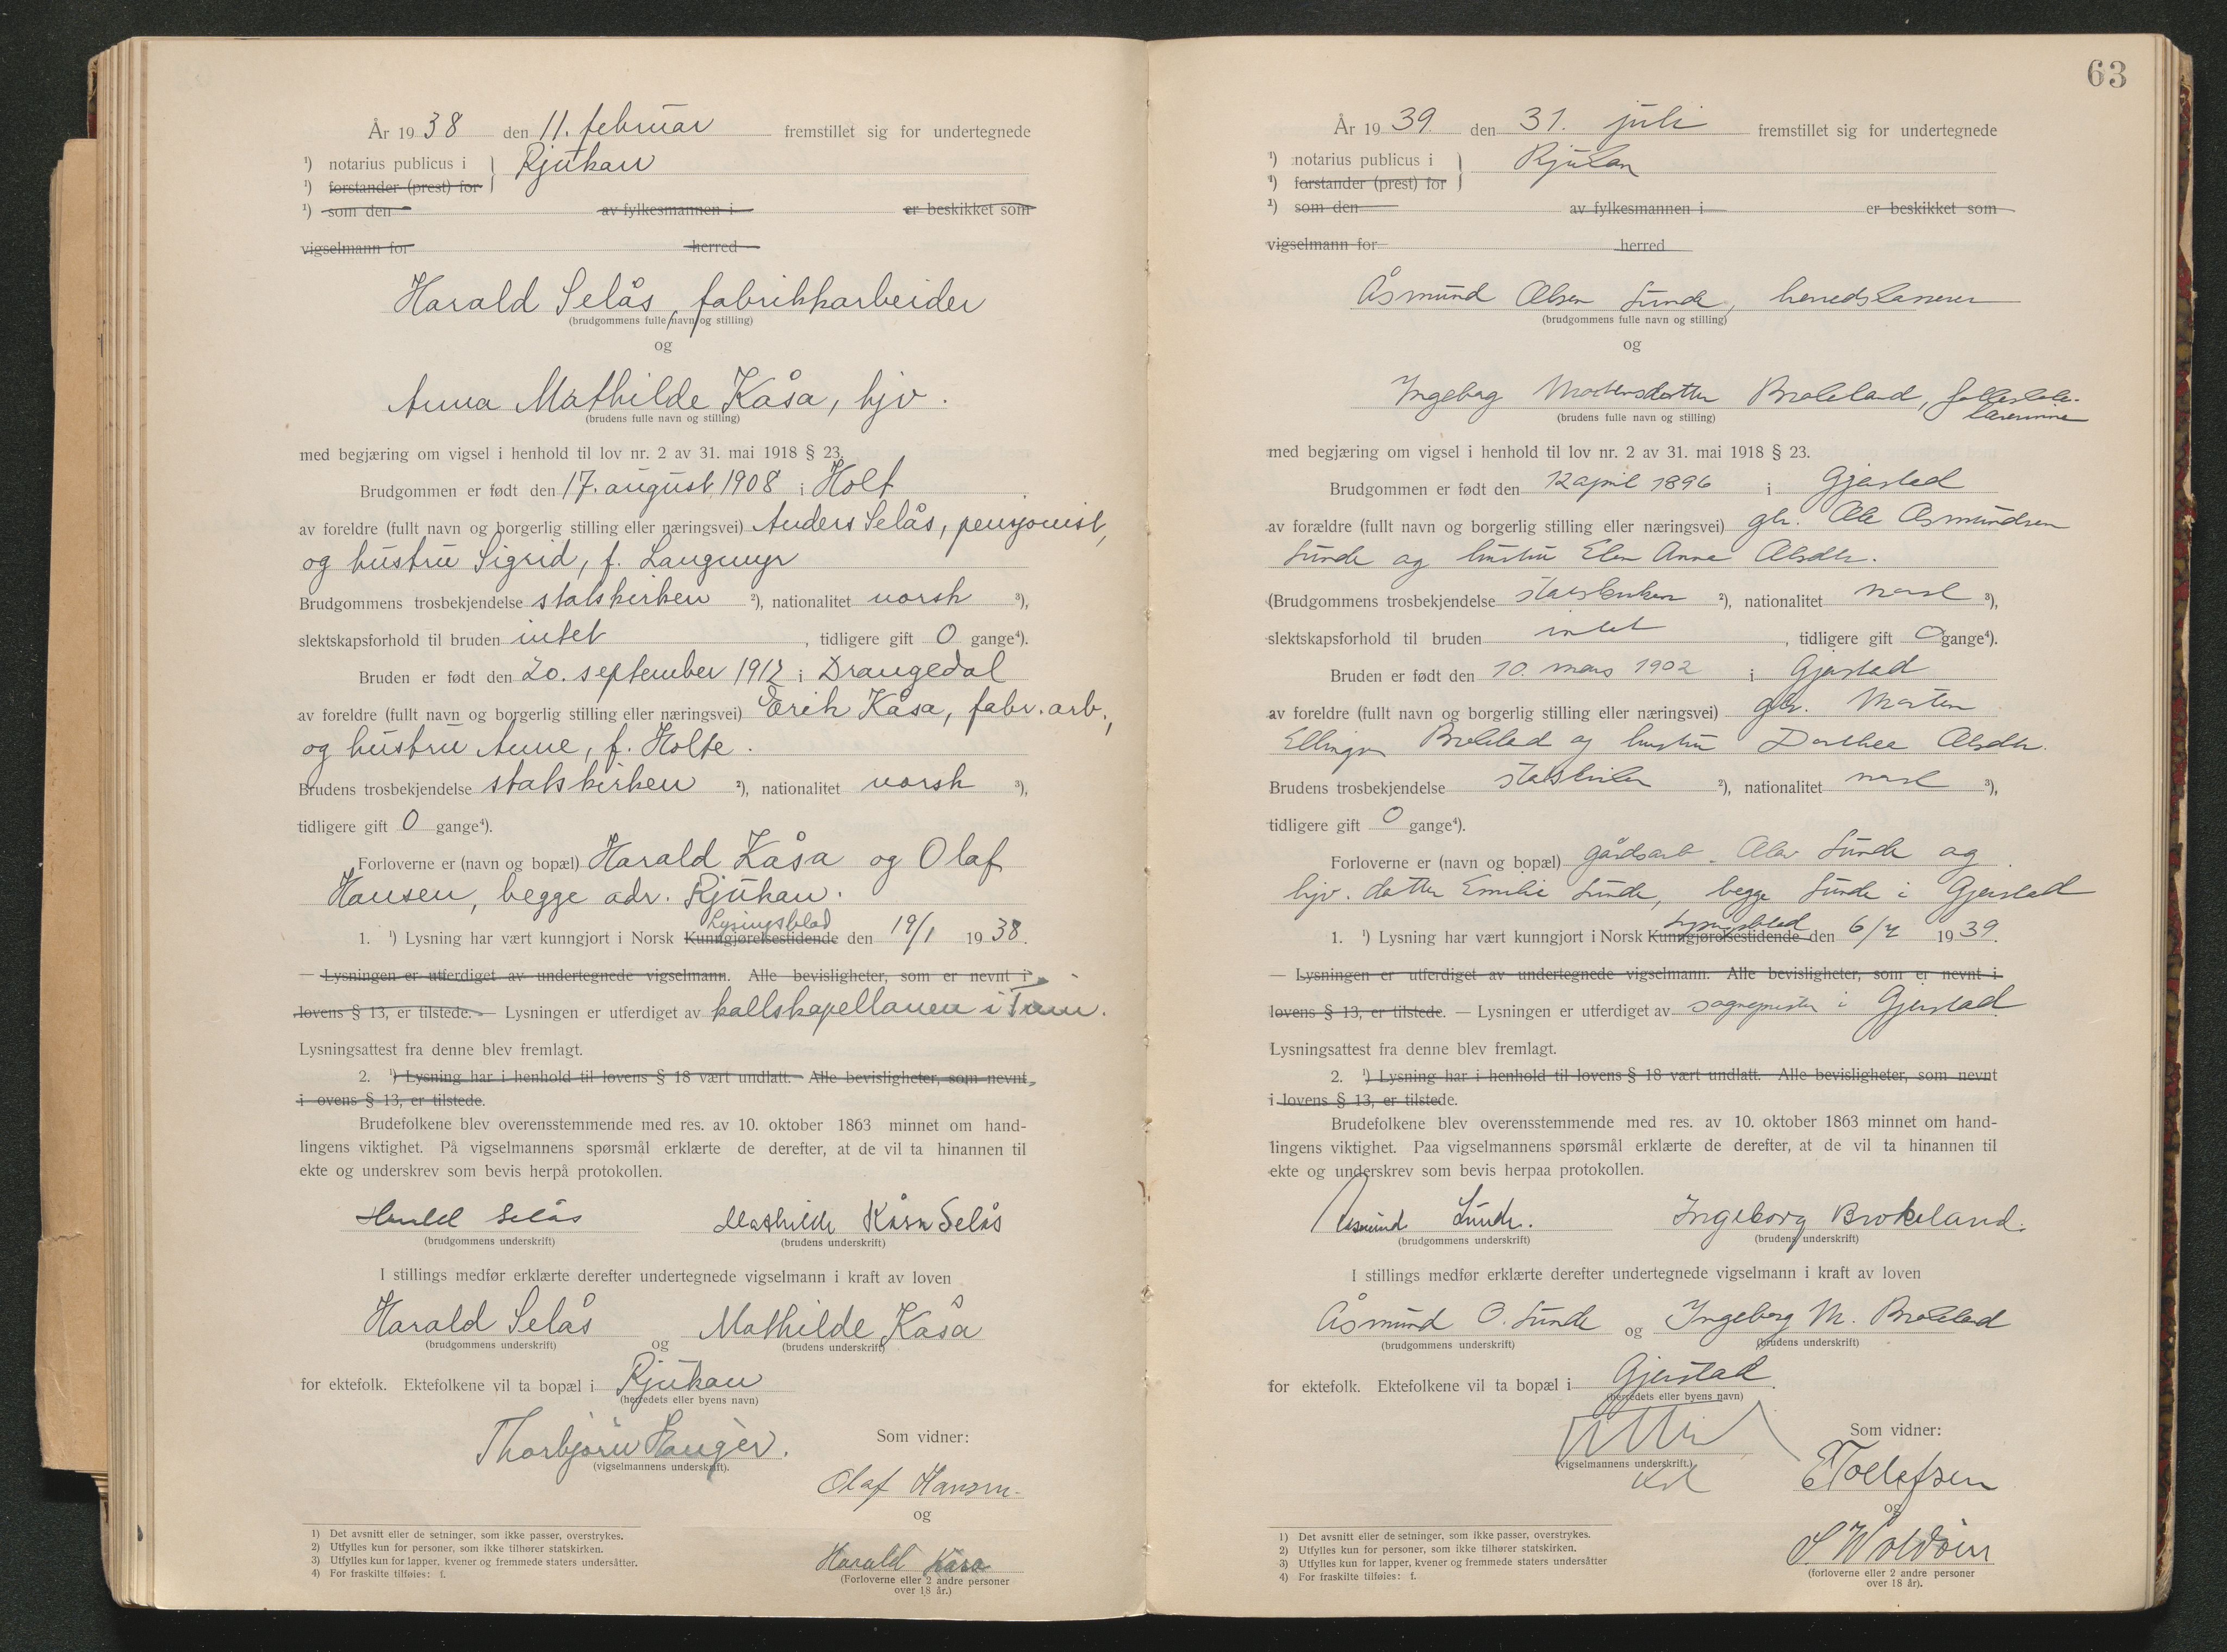 År 1938 den 11. februar fremstillet sig for undertegnede
¹) notarius publicus i } Rjukan
¹) forstander (prest) for
¹) som den av fylkesmannen i er beskikket som
vigselmann for herred
Harald Selås, fabrikkarbeider
(brudgommens fulle navn og stilling)
og
Anna Mathilde Kåsa, hjv.
(brudens fulle navn og stilling)
med begjæring om vigsel i henhold til lov nr. 2 av 31. mai 1918 § 23.
Brudgommen er født den 17. august 1908 i Holt
av foreldre (fullt navn og borgerlig stilling eller næringsvei) Anders Selås, pensjonist,
og hustru Sigrid, f. Langmyr
Brudgommens trosbekjendelse statskirken ²), nationalitet norsk ³),
slektskapsforhold til bruden intet, tidligere gift 0 gange⁴).
Bruden er født den 20. september 1912 i Drangedal
av foreldre (fullt navn og borgerlig stilling eller næringsvei) Erik Kåsa, fabr. arb.,
og hustru Anne, f. Holte.
Brudens trosbekjendelse statskirken ²), nationalitet norsk ³),
tidligere gift 0 gange⁴).
Forloverne er (navn og bopæl) Harald Kåsa og Olaf
Hansen, begge adr. Rjukan.
Lysingsblad
1. ¹) Lysning har vært kunngjort i Norsk Kunngjørelsestidende den 19/1 1938.
— Lysningen er utferdiget av undertegnede vigselmann. Alle bevisligheter, som er nevnt i
lovens § 13, er tilstede. — Lysningen er utferdiget av kallskapellanen i Tinn.
Lysningsattest fra denne blev fremlagt.
2. ¹) Lysning har i henhold til lovens § 18 vært undlatt. Alle bevisligheter, som nevnt
i ovens § 13, er tilstede.
Brudefolkene blev overensstemmende med res. av 10. oktober 1863 minnet om hand-
lingens viktighet. På vigselmannens spørsmål erklærte de derefter, at de vil ta hinannen til
ekte og underskrev som bevis herpå protokollen.
Harald Selås Mathilde Kåsa Selås
(brudgommens underskrift) (brudens underskrift)
I stillings medfør erklærte derefter undertegnede vigselmann i kraft av loven
Harald Selås og Mathilde Kåsa
(brudgommens underskrift) (brudens underskrift)
for ektefolk. Ektefolkene vil ta bopæl i Rjukan
(herredets eller byens navn)
Thorbjørn Hauger.
(vigselmannens underskrift).
Som vidner:
Olaf Hansen
og
Harald Kåsa
(Forloverne eller 2 andre personer
over 18 år.)
1) Det avsnitt eller de setninger, som ikke passer, overstrykes.
2) Utfylles kun for personer, som ikke tilhører statskirken.
3) Utfylles kun for lapper, kvener og fremmede staters undersåtter.
4) For fraskilte tilføies: f.
63
År 1939. den 31. juli fremstillet sig for undertegnede
¹) notarius publicus i } Rjukan
¹) forstander (prest) for
¹) som den av fylkesmannen i er beskikket som
vigselmann for herred
Åsmund Olsen Sunde, herredskasserer
(brudgommens fulle navn og stilling)
og
Ingeborg Mortensdatter Brokeland, folkeskole-
lærerinne
(brudens fulle navn og stilling)
med begjæring om vigsel i henhold til lov nr. 2 av 31. mai 1918 § 23.
Brudgommen er født den 12 april 1896 i Gjerstad
av forældre (fullt navn og borgerlig stilling eller næringsvei) gbr. Ole Asmundsen
Sunde og hustru Elen Anne Olsdtr.
(Brudgommens trosbekjendelse statskirken ²), nationalitet norsk ³),
slektskapsforhold til bruden intet, tidligere gift 0 gange⁴).
Bruden er født den 10. mars 1902 i Gjerstad
av foreldre (fullt navn og borgerlig stilling eller næringsvei) gbr. Morten
Ellingsen Brokeland og hustru Dorthea Olsdtr.
Brudens trosbekjendelse statskirken ²), nationalitet norsk ³),
tidligere gift 0 gange⁴).
Forloverne er (navn og bopæl) gårdsarb. Olav Sunde og
hjv. datter Emilie Sunde, begge Sunde i Gjerstad
Lysingsblad
1. ¹) Lysning har vært kunngjort i Norsk Kunngjørelsestidende den 6/7 1939.
— Lysningen er utferdiget av undertegnede vigselmann. Alle bevisligheter, som er nevnt i
lovens § 13, er tilstede. — Lysningen er utferdiget av sognepresten i Gjerstad
Lysningsattest fra denne blev fremlagt.
2. ¹) Lysning har i henhold til lovens § 18 vært undlatt. Alle bevisligheter, som nevnt
i lovens § 13, er tilstede.
Brudefolkene blev overensstemmende med res. av 10. oktober 1863 minnet om hand-
lingens viktighet. Paa vigselmannens spørsmål erklærte de derefter, at de vil ta hinannen til
ekte og underskrev som bevis herpaa protokollen.
Aasmund Sunde. Ingeborg Brokeland.
(brudgommens underskrift) (brudens underskrift)
I stillings medfør erklærte derefter undertegnede vigselmann i kraft av loven
Åsmund O. Sunde og Ingeborg M. Brokeland
(brudgommens underskrift) (brudens underskrift)
for ektefolk. Ektefolkene vil ta bopæl i Gjerstad
(herredets eller byens navn)
(vigselmannens underskrift.)
Som vidner:
E Tollefsen
og
S. Woldøin
(forloverne eller 2 andre personer
over 18 år).
1) Det avsnitt eller de setninger, som ikke passer, overstrykes.
2) Utfylles kun for personer, som ikke tilhører statskirken.
3) Utfylles kun for lapper, kvener og fremmede staters undersåtter
4) For fraskilte tilføies: f.